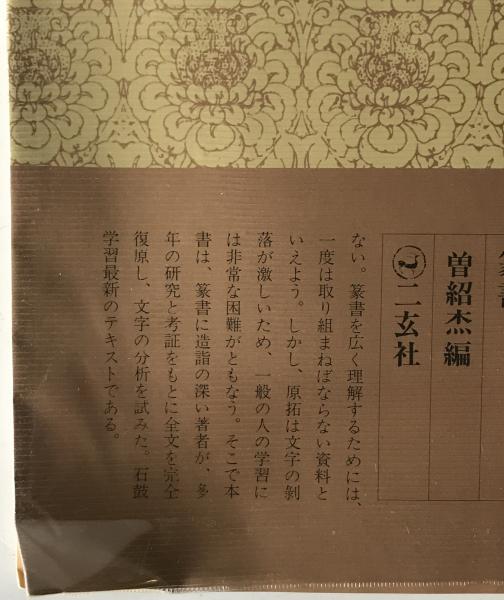 篆書
曽紹杰編
二玄社
ない。篆書を広く理解するためには、
一度は取り組まねばならない資料と
いえよう。しかし、原拓は文字の剝
落が激しいため、一般の人の学習に
は非常な困難がともなう。そこで本
書は、篆書に造詣の深い著者が、多
年の研究と考証をもとに全文を完全
復原し、文字の分析を試みた。石鼓
学習最新のテキストである。